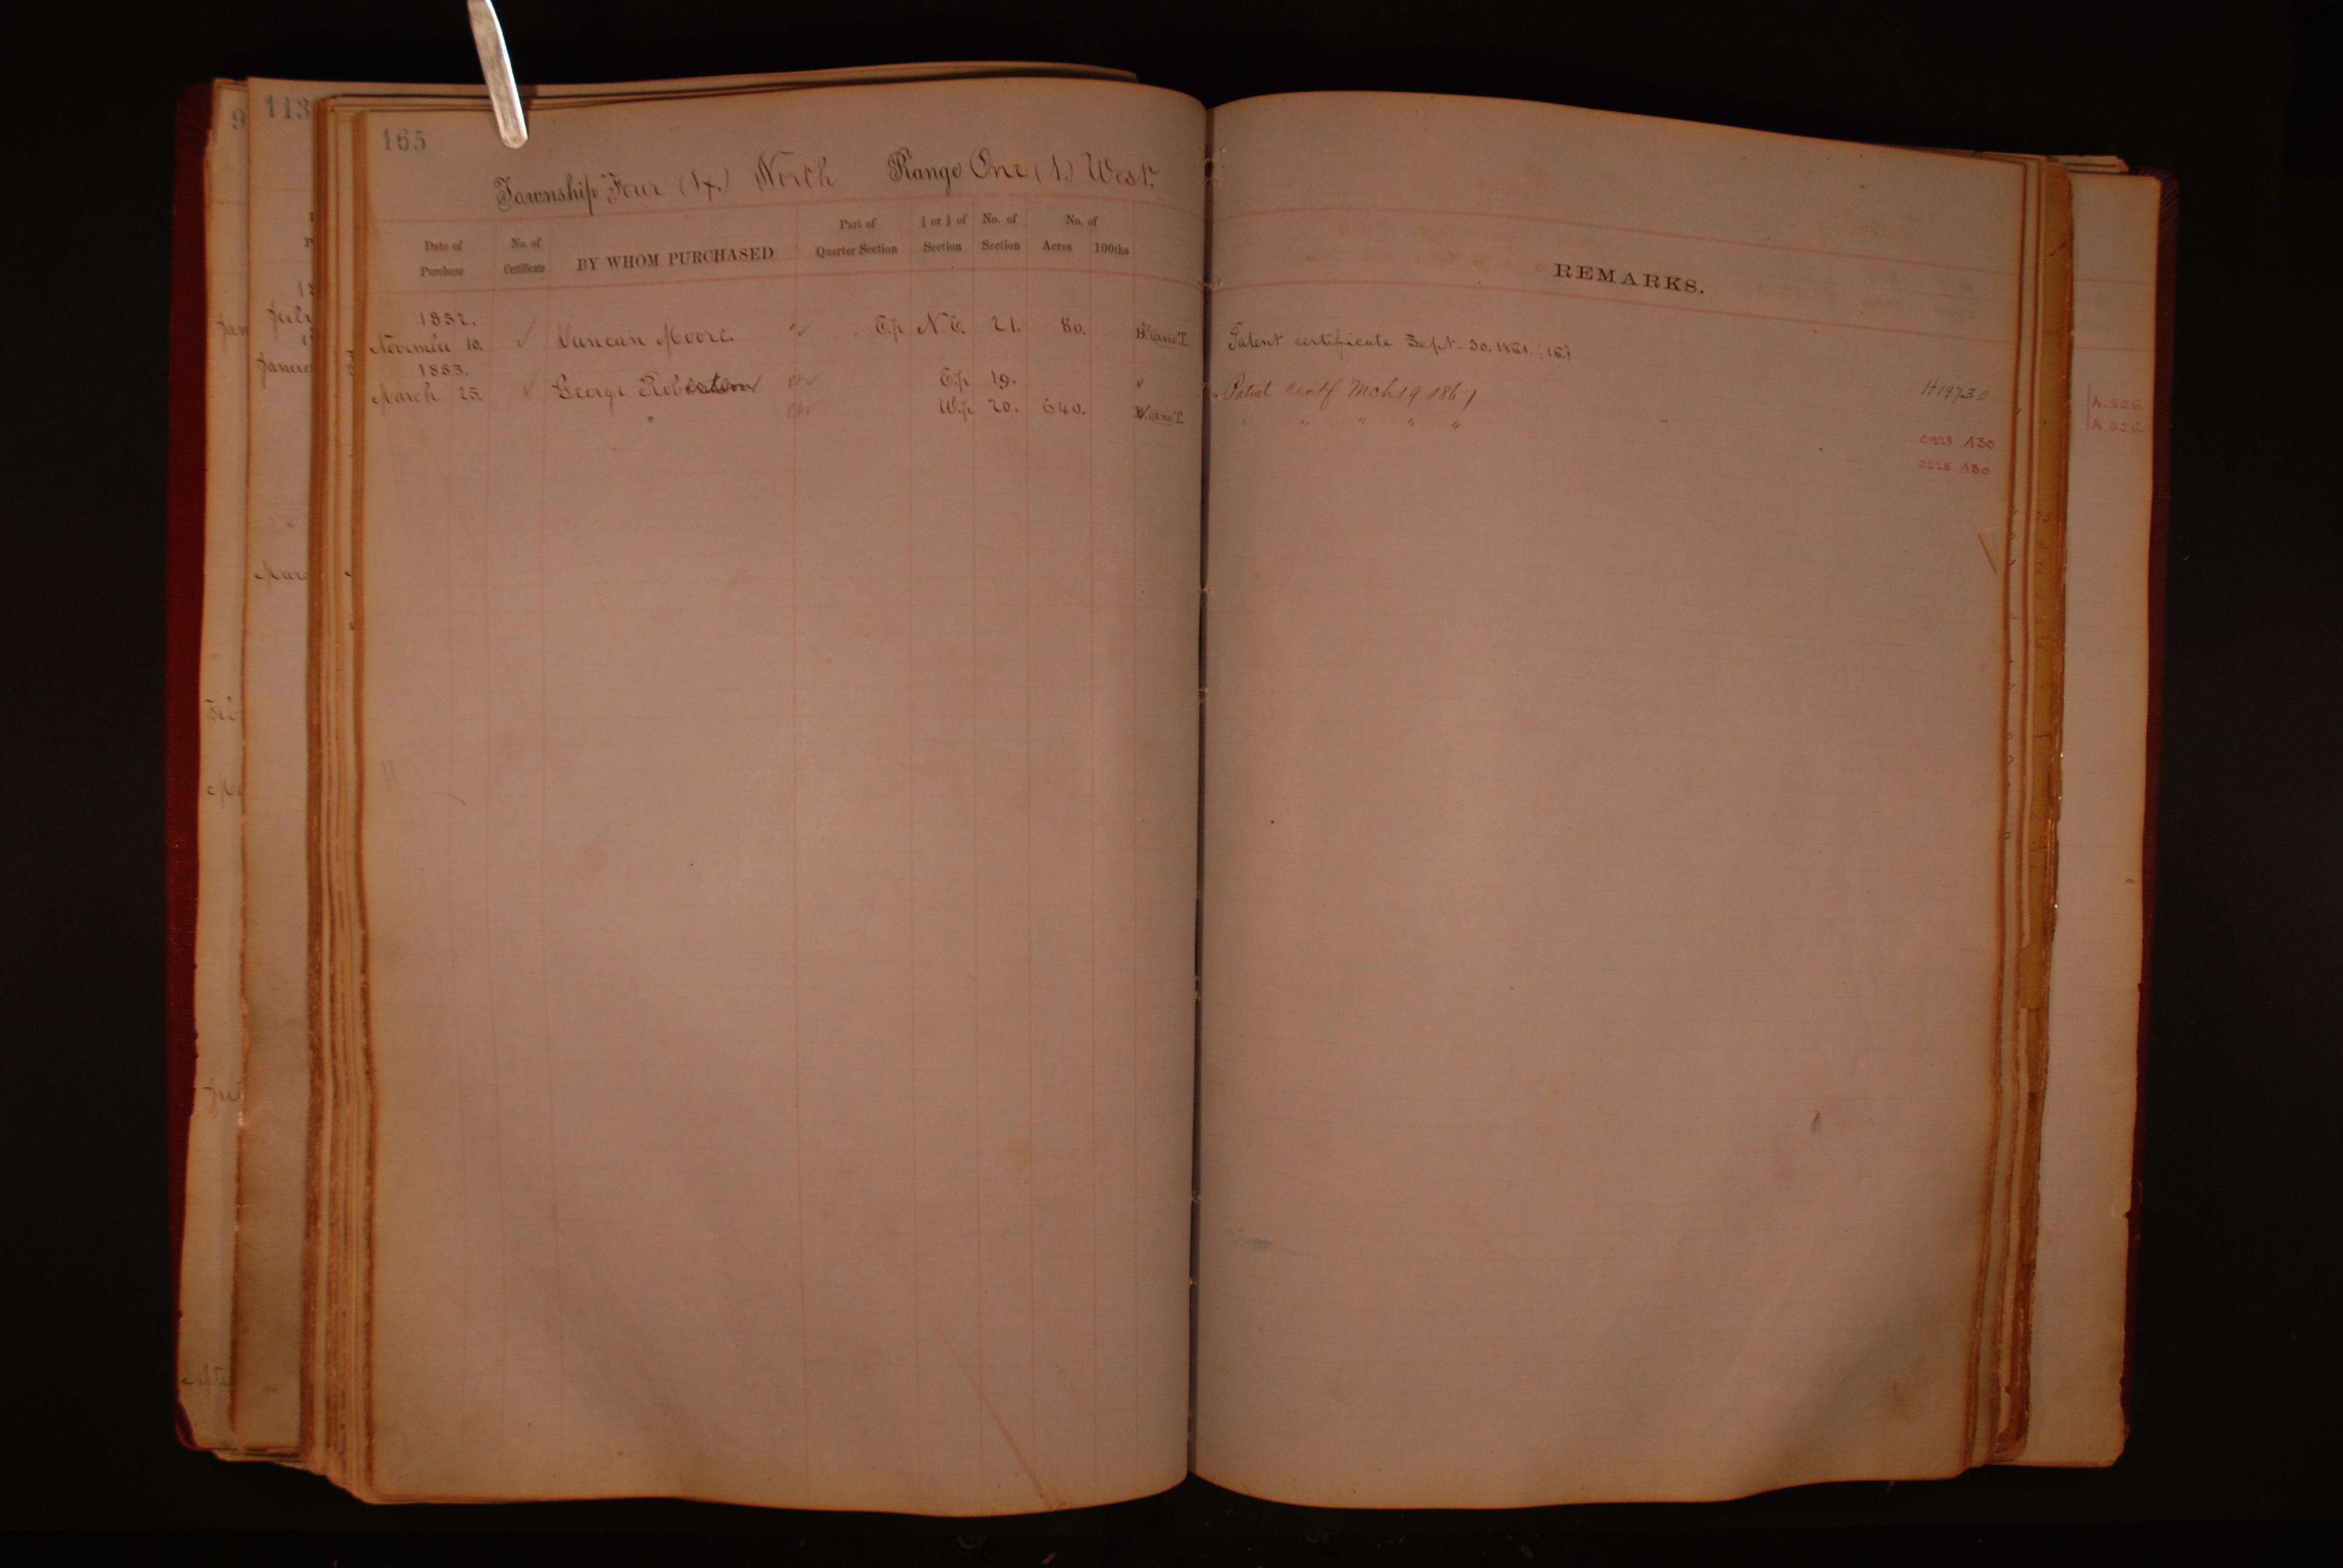 9
113
165
Township Four (4.) North Range One (1.) West.
Date of Purchase No. of Certificate BY WHOM PURCHASED Part of Quarter Section ½ or ¼ of Section No. of Section No. of Acres 100ths
REMARKS.
1852.
November 10. ✓ Duncan Moore. E.p N.E. 21. 80. Patent certificate Sept. 30. 1861. (16.)
1853.
March 25. ✓ George Robertson E.p 19. Patent certf Mch 19 1867 H19730
" W.p 20. 640. " " " " "
C228 A30
C228 A30
A. 326.
A 326.